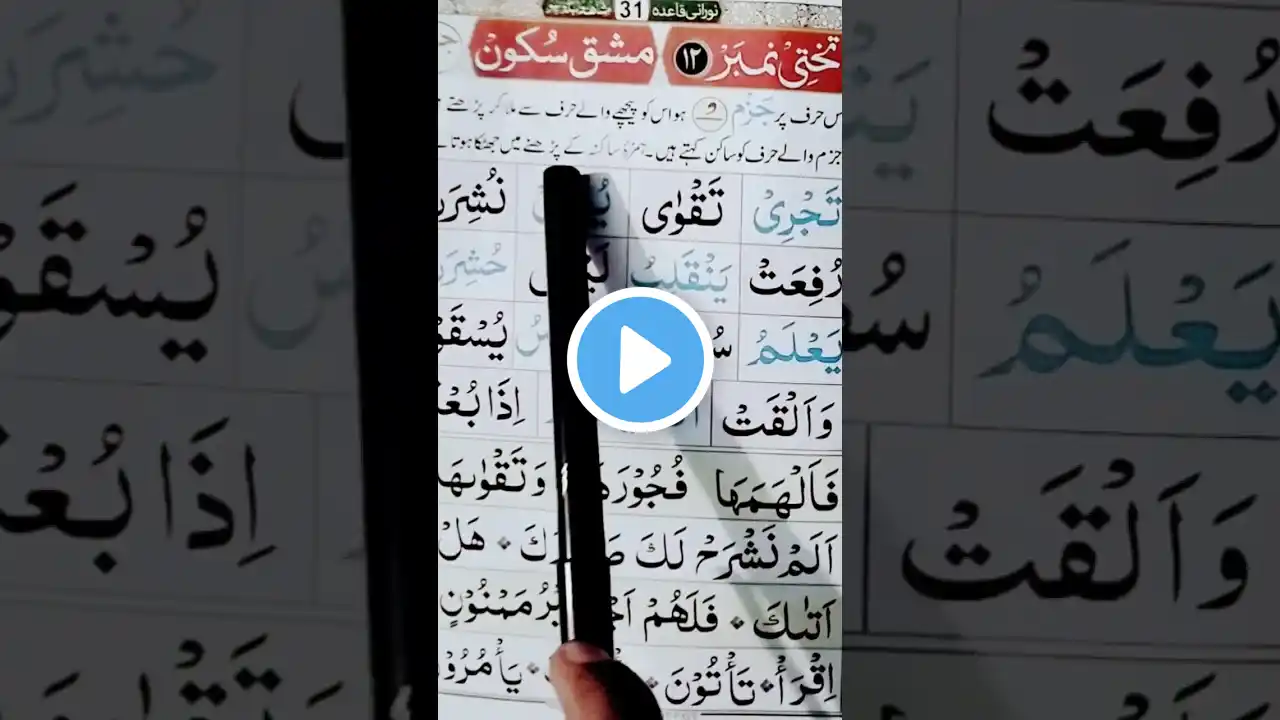 نورانی قاعدہ 31
تختی نمبر ۱۲ مشق سکون
جس حرف پر جزم ہو اس کو پیچھے والے حرف سے ملا کر پڑھتے
جزم والے حرف کو ساکن کہتے ہیں۔ ہمزہ ساکنہ کے پڑھنے میں جھٹکا ہوتا
تَجْرِیْ تَقْوٰی نُشِرَتْ
رُفِعَتْ یَنْقَلِبُ حُشِرَتْ
یَعْلَمُ یُسْقَوْ
وَاَلْقَتْ اِذَا بُعْ
فَاَلْهَمَهَا فُجُوْرَهَا وَتَقْوٰىهَا
اَلَمْ نَشْرَحْ لَكَ صَدْرَكَ هَلْ
اَتٰىكَ فَلَهُمْ مَمْنُوْنٍ
اِقْرَأْ تَأْتُوْنَ یَأْمُرُوْ